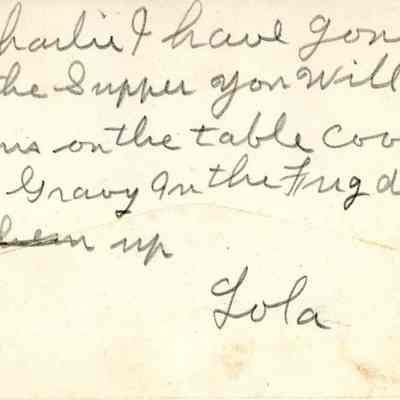 harlie I have gon
he Supper you Will
ns on the table Coo
Gravy In the Frug d
up
Lola